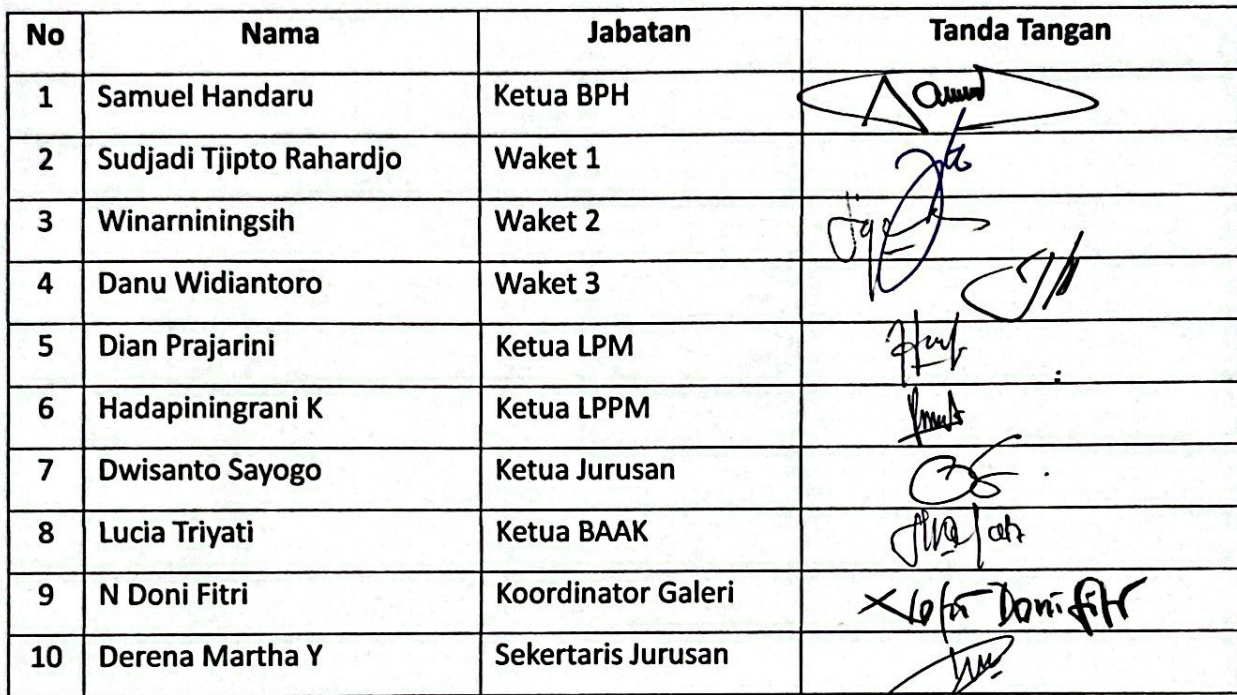 No Nama Jabatan Tanda Tangan
1 Samuel Handaru Ketua BPH
2 Sudjadi Tjipto Rahardjo Waket 1
3 Winarniningsih Waket 2
4 Danu Widiantoro Waket 3
5 Dian Prajarini Ketua LPM
6 Hadapiningrani K Ketua LPPM
7 Dwisanto Sayogo Ketua Jurusan
8 Lucia Triyati Ketua BAAK
9 N Doni Fitri Koordinator Galeri Doni fitri
10 Derena Martha Y Sekertaris Jurusan